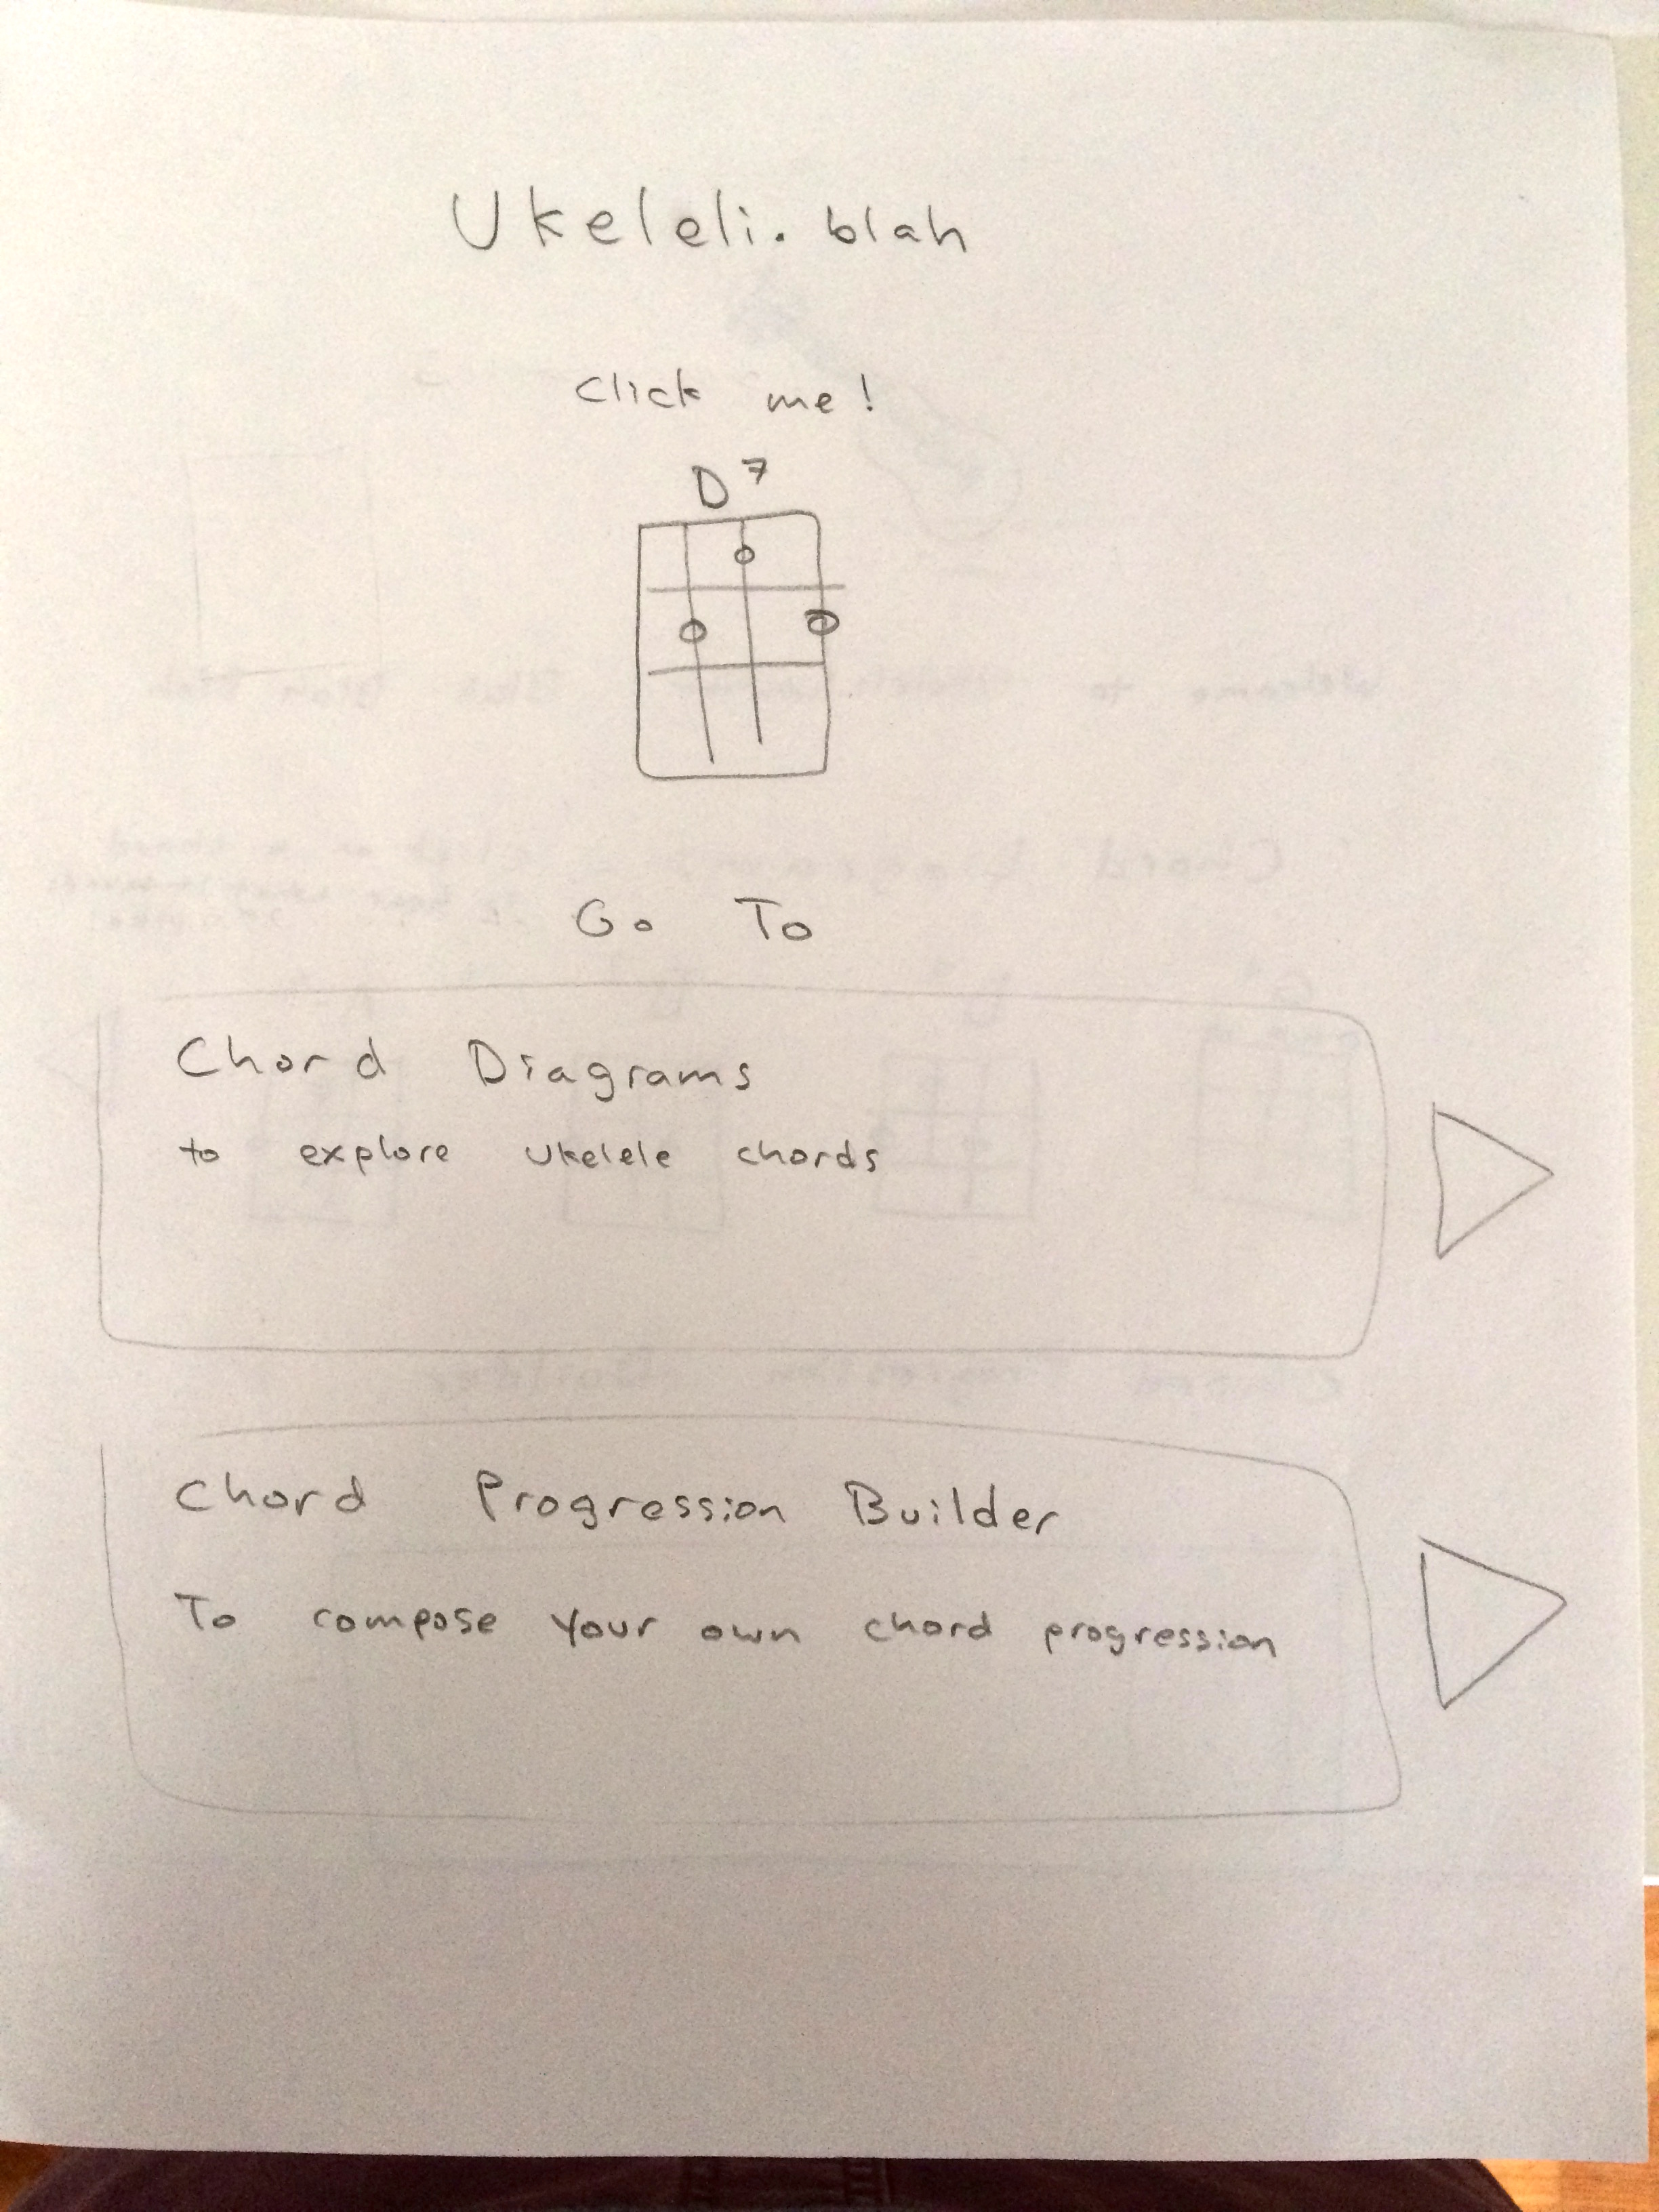 Ukeleli. blah
Click me!
D7
Go To
Chord Diagrams
to explore ukelele chords
Chord Progression Builder
To compose your own chord progression